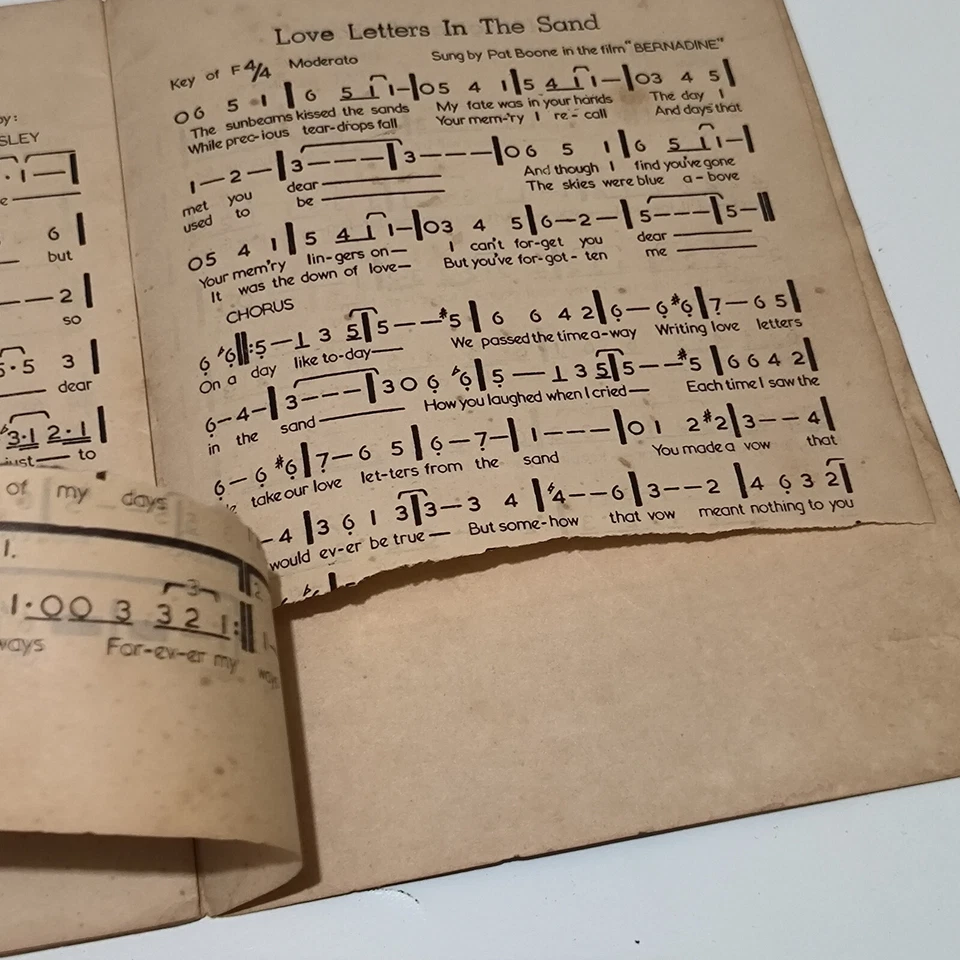 Love Letters In The Sand
Key of F 4/4 Moderato Sung by Pat Boone in the film "BERNADINE"
0 6 5 1 | 6 5 1 1 – | 0 5 4 1 | 5 4 1 1 – | 0 3 4 5 |
The sunbeams kissed the sands My fate was in your hands The day I
While prec-ious tear-drops fall Your mem-'ry I re-call And days that
1 — 2 — | 3 – – – | 3 – – – | 0 6 5 1 | 6 5 1 1 – |
met you dear And though I find you've gone
used to be The skies were blue a-bove
0 5 4 1 | 5 4 1 1 – | 0 3 4 5 | 6 – 2 – | 5 – – – | 5 – ||
Your mem'ry lin-gers on— I can't for-get you dear
It was the down of love— But you've for-got-ten me
CHORUS
6 b6 ||: 5 – 1 3 5 | 5 – – #5 | 6 6 4 2 | 6 – 6 #6 | 7 – 6 5 |
On a day like to-day— We passed the time a-way Writing love letters
6 – 4 – | 3 – – – | 3 0 6 b6 | 5 – 1 3 5 | 5 – – #5 | 6 6 4 2 |
in the sand How you laughed when I cried— Each time I saw the
6 – 6 #6 | 7 – 6 5 | 6 – 7 – | 1 – – – | 0 1 2 #2 | 3 – – 4 |
take our love let-ters from the sand You made a vow that
– 4 | 3 6 1 3 | 3 – 3 4 | b4 – – 6 | 3 – – 2 | 4 6 3 2 |
would ev-er be true— But some-how that vow meant nothing to you
by:
SLEY
· 1 — |
e
6 |
but
– – 2 |
so
5 · 5 3 |
dear
b3·1 2·1 |
just— to
of my days
1.
1·00 3 3 2 1 :||
ways For-ev-er my